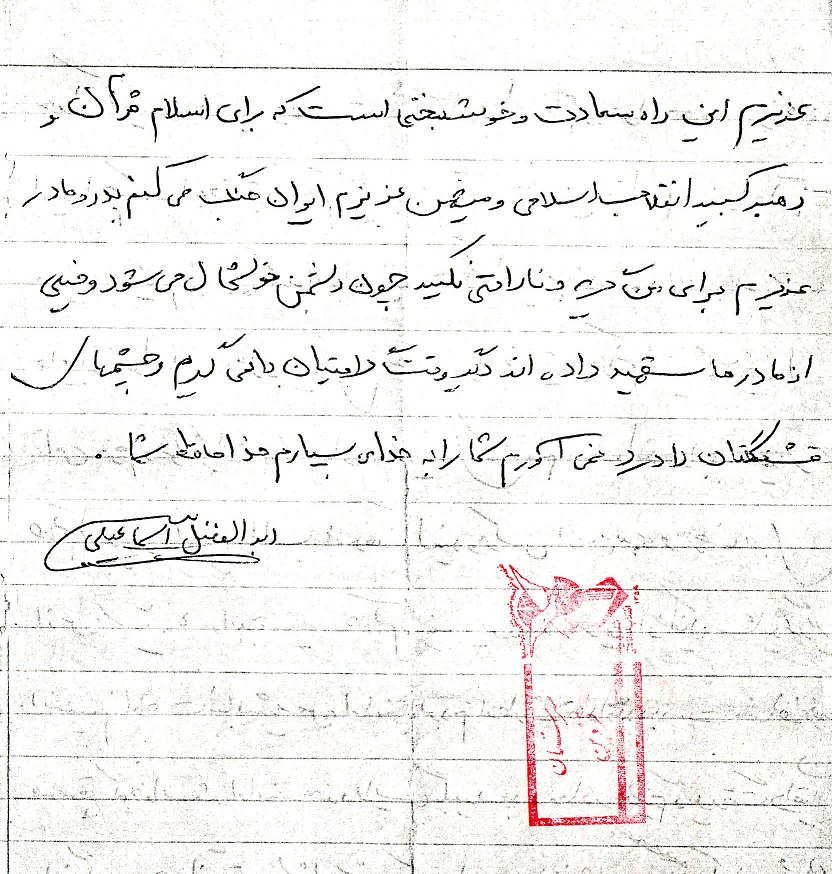 عزیزم این راه سعادت و خوشبختی است که برای اسلام قرآن و
رهبر کبیر انقلاب اسلامی و میهن عزیزم ایران جنگ می کنم پدر و مادر
عزیزم برای من گریه و ناراحتی نکنید چون دشمن خوشحال می شود و خیلی
از مادرها شهید داده اند دیگر وقت را امتیان نمی گیرم و چشمهای
قشنگتان را درد نمی آورم شما را به خدای سپارم خدا حافظ شما .
ابوالفضل اسماعیلی